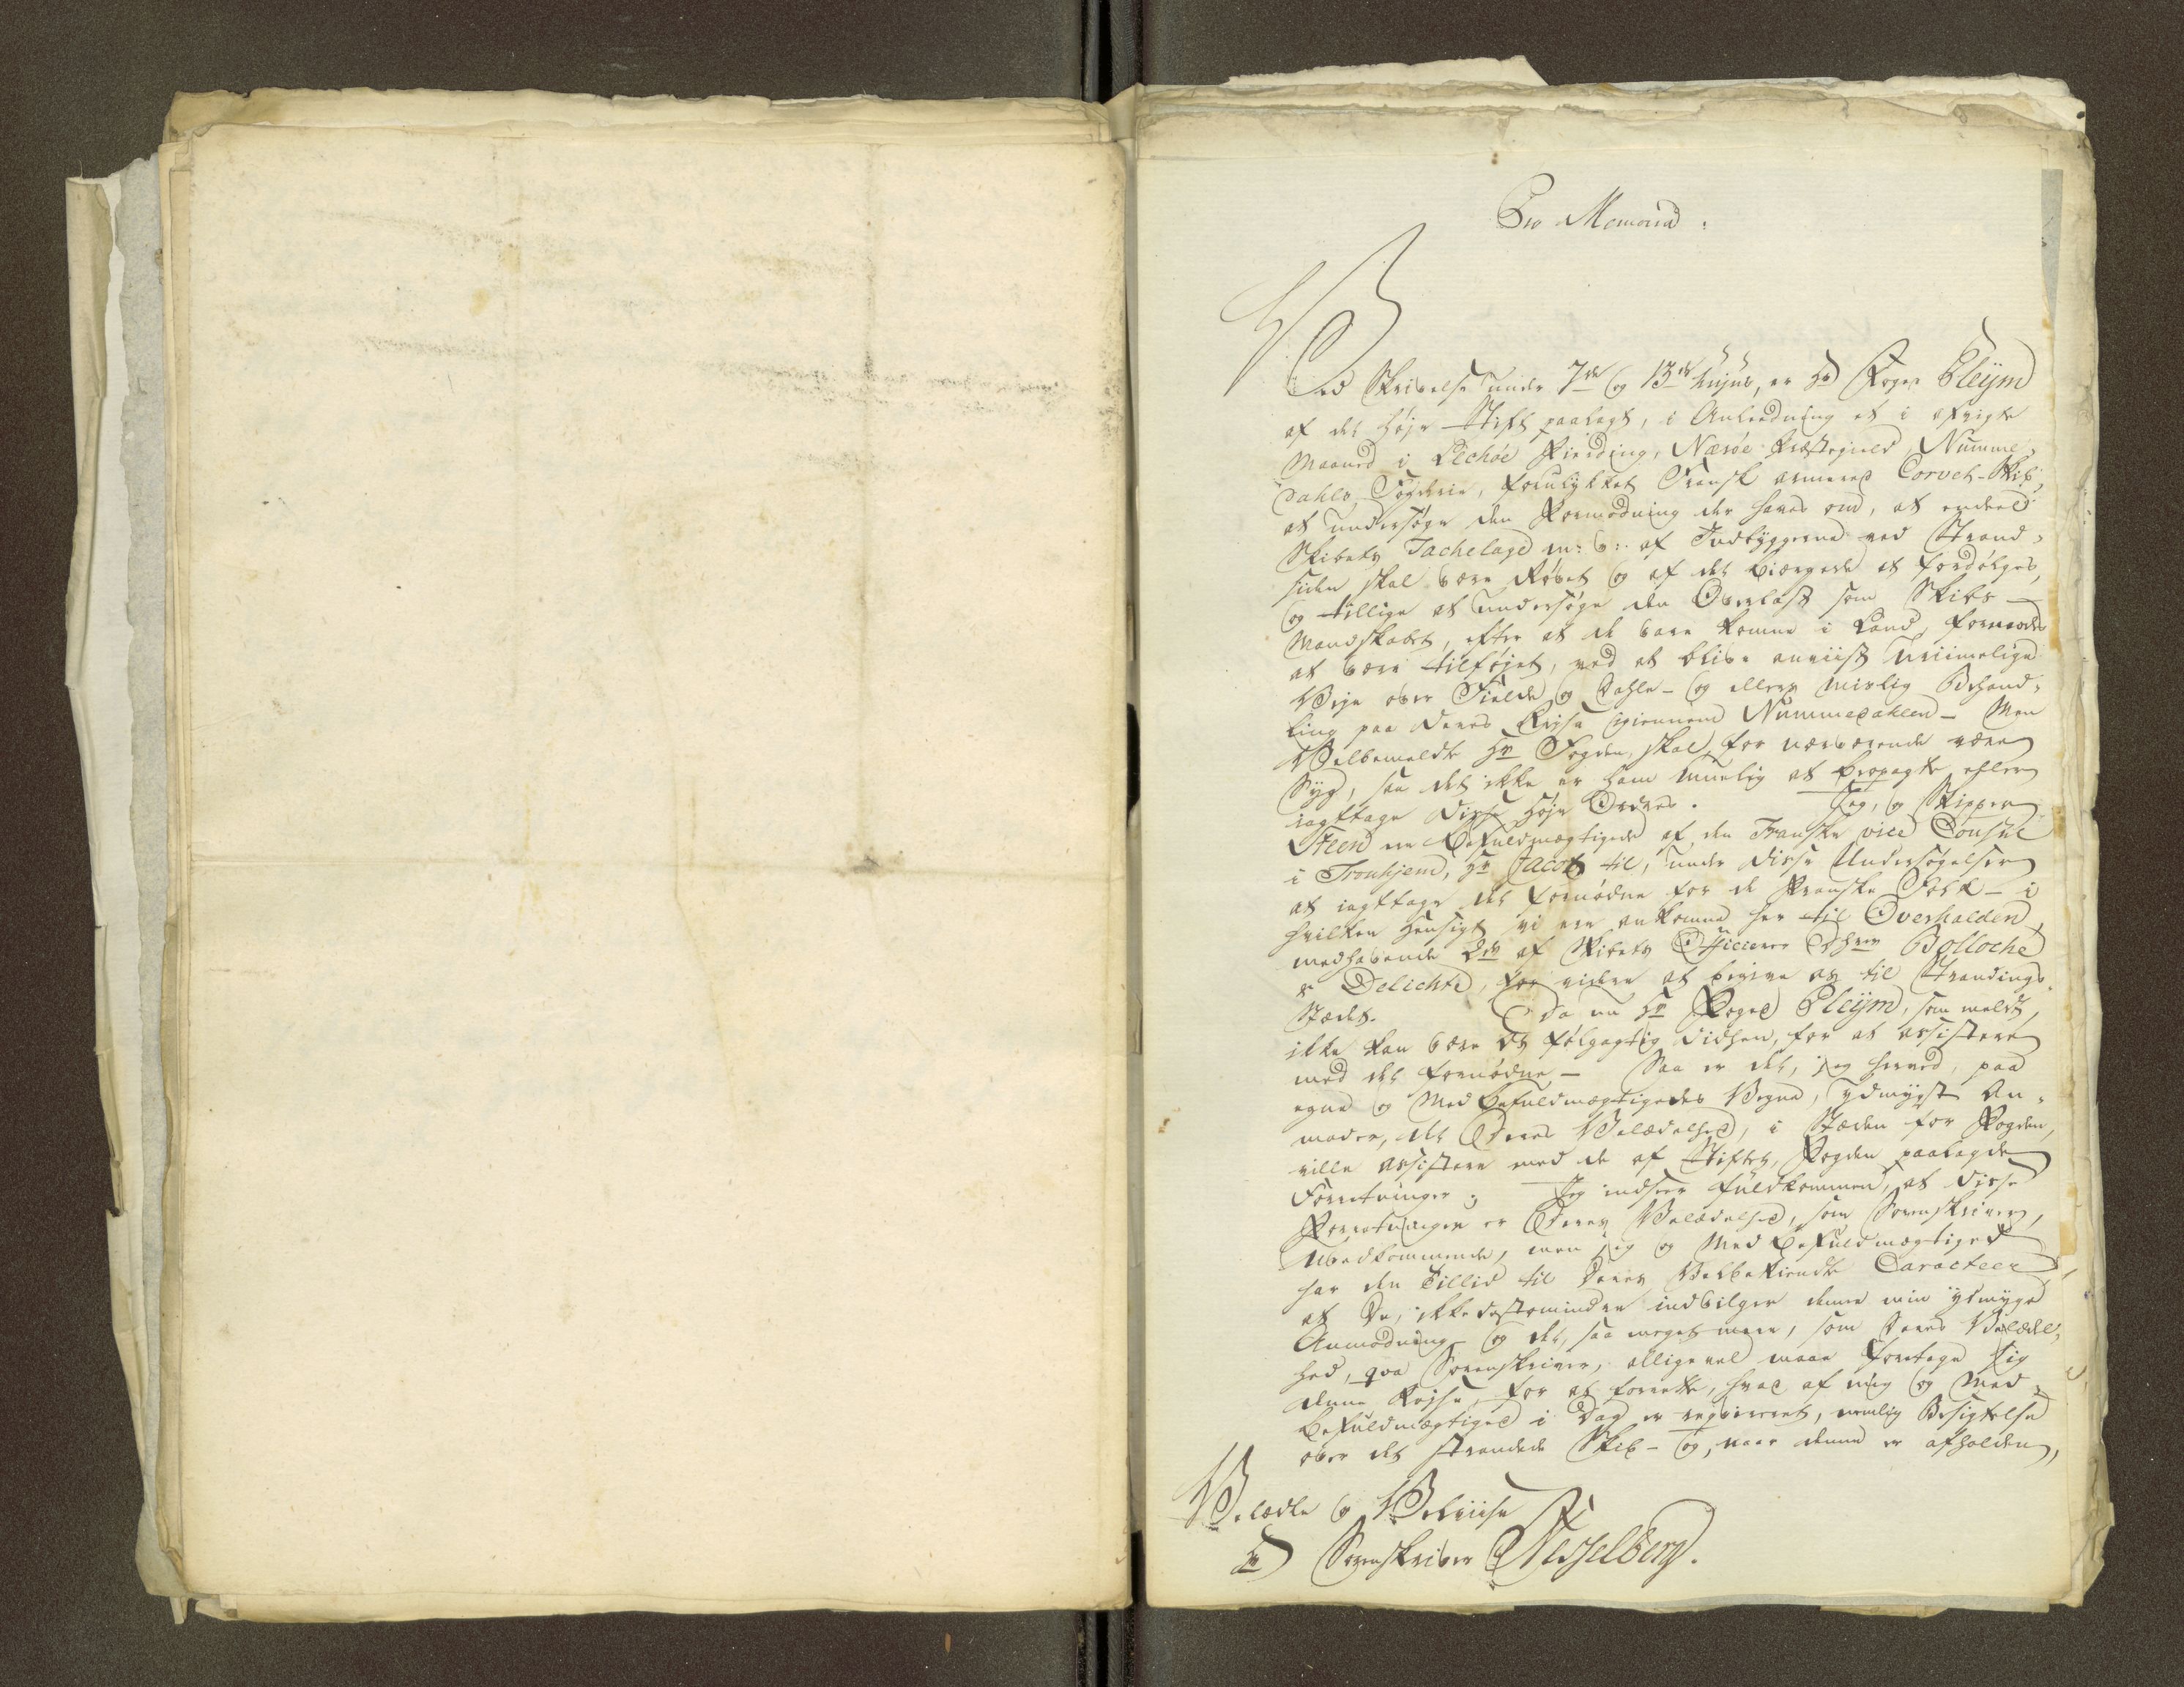 Pro Memoria:
Ved Skrivelse under 7de og 13de hujus, er Hr Foged Pleijm
af det høje Stift paalagt, i Anledning et i afvigte
Maaned i Lechøe Fierding, Nærøe Præstegield, Numme-
dahls Fogderie, forulykket Fransk armered Corvet-Skib,
at undersøge den Formodning der haves om, at endeel
Skibets Tachelage m: v: af Indbyggerne ved Strand-
siden skal være Røvet og af det biergede at fordølges,
og tillige at undersøge den Overlast som Skibs-
Mandskabet, efter at de vare komne i Land, formodes
at være tilføjet, ved at blive anviist urimelige
Veje over Fielde og Dahle - og ellers mislig Behand-
ling paa deres Rejse igiennem Nummedahlen - Men
Velbemeldte Hr Fogden, skal for nærværende være
Syg, saa det ikke er ham muelig at beragte eller
iagttage disse høje Ordres. Jeg, og Skipper
Steen ere Befuldmægtigede af den Franske vice Consul
i Tronhjem, Hr Jacob til, under disse Undersøgelser
at iagttage det fornødne for de Franske Folk - i
hvilken Hensigt vi ere ankomne her til Overhalden,
medhavende 2de af Skibets Officierer Bolloche
& Delichte, for videre at begive os til Strandings-
Stædet. Da nu Hr Foged Pleijm, som meldt,
ikke kan være os følgagtig didhen, for at assistere
med det fornødne - Saa er det, jeg herved, paa
egne og Medbefuldmægtigedes Vegne, ydmygst An-
moder, det Deres Velædelhed, i Stæden for Fogden,
ville assistere med de af Stiftet, Fogden paalagde
Forretninger; Jeg indseer fuldkommen, at disse
Forretninger er Deres Velædelhed, som Sorenskriver,
uvedkommende, men jeg og Med Befuldmægtiged
har den Tillid til Deres Velbekiendte Caracteer,
at De, ikke destomindre indvilger denne min ydmyge
Anmodning og det, saa meget mere, som Deres Velædel-
hed, qva Sorenskriver, alligevel maae foretage sig
denne Rejse, for at forrette, hvad af mig og Med-
Befuldmægtiged i Dag er reqvireret, nemlig Besigtelse
over det strandede Skib - og, naar denne er afholden,
Velædle og Velviise
Hr Sorenskriver Nesselberg.